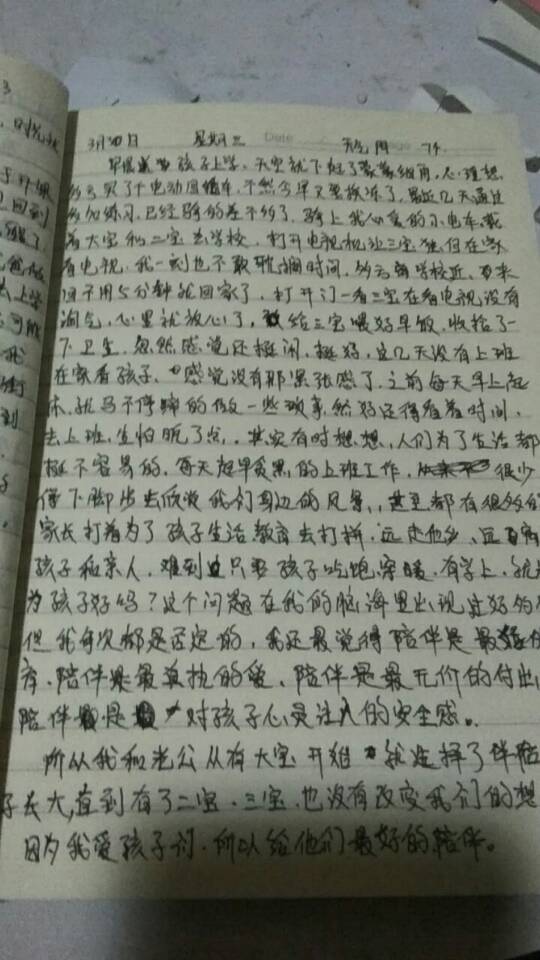 3月30日 星期三 Date 天气 阴 74.
早晨 孩子上学,天空就下起了蒙蒙细雨,心里想
多亏买了个电动 车,不然今早又要挨冻了,最近几天通过
多加练习,已经骑的差不多了,骑上我心爱的小电车,载
着大宝和二宝去学校,打开电视机让三宝 在家
看电视,我一刻也不敢耽搁时间,多亏离学校近,要来
回不用5分钟就回家了,打开门一看三宝在看电视没有
淘气,心里就放心了,给三宝喂好早饭,收拾了一
下卫生,忽然感觉还挺闲,挺好,这几天没有上班
在家看孩子,感觉没有那紧张感了,之前每天早上起
床,就马不停蹄的做一些琐事,然好还得看着时间,
去上班,生怕晚了点,其实有时想想,人们为了生活都
挺不容易的,每天起早贪黑的上班工作,很少
停下脚步去欣赏我们身边的风景,甚至都有很多的
家长打着为了孩子生活教育去打拼,远走他乡,远离
孩子和亲人,难到只要孩子吃饱穿暖,有学上,就是
为孩子好吗?这个问题在我的脑海里出现过好多
但我每次都是否定的,我还最觉得陪伴是最
育,陪伴是最真挚的爱,陪伴是最无价的付出
陪伴是对孩子心灵注入的安全感。
所以我和老公从有大宝开始就选择了伴陪
子长大,直到有了二宝、三宝,也没有改变我们的想
因为我爱孩子们,所以给他们最好的陪伴。